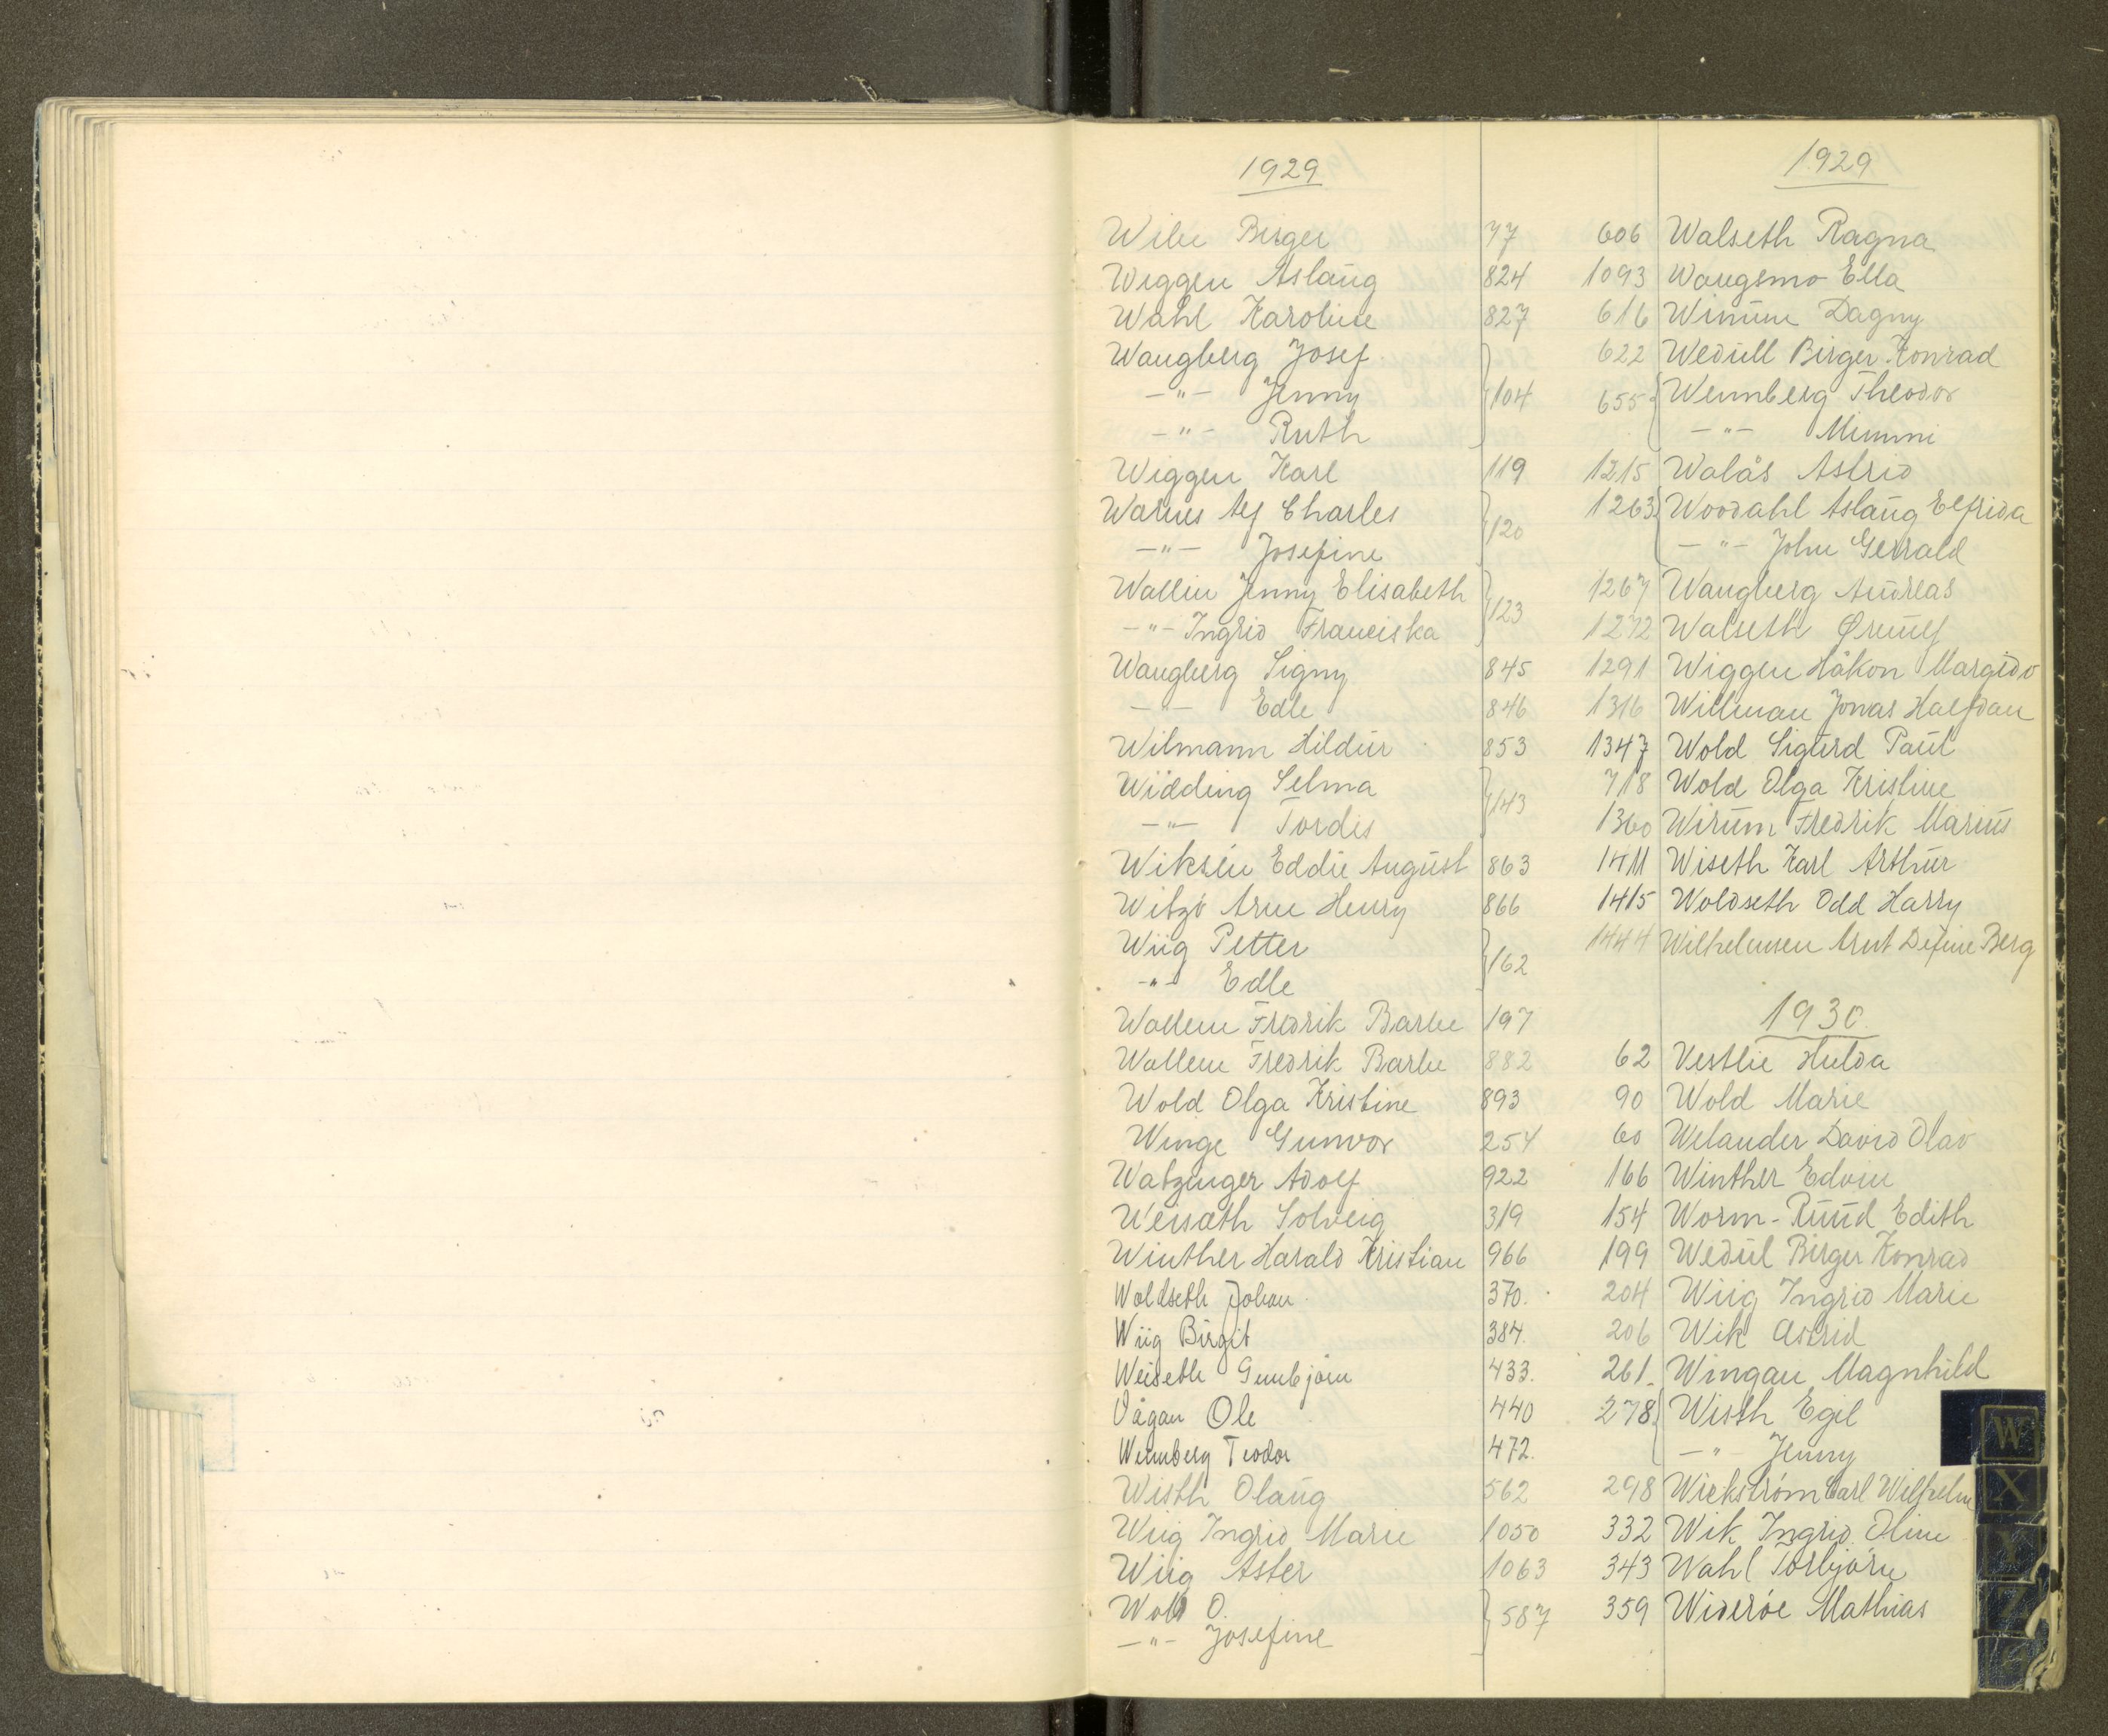 1929
Wibe Birger 77
Wiggen Aslaug 824
Wahl Karoline 827
Wangberg Josef
—"— Jenny 104
—"— Ruth
Wiggen Karl 119
Warnes Alf Charles
—"— Josefine 120
Wallin Jenny Elisabeth
—"— Ingrid Franciska 123
Wangberg Signy 845
—"— Edle 846
Wilmann Hildur 853
Widding Selma
—"— Tordis 143
Wiksén Eddie August 863
Witzö Arne Henry 866
Wiig Petter
-"- Edle 162
Wallem Fredrik Barbe 197
Wallem Fredrik Barbe 882
Wold Olga Kristine 893
Winge Gunvor 254
Watzinger Adolf 922
Weisæth Solveig 319
Winther Harald Kristian 966
Woldseth Johan 370.
Wiig Birgit 384.
Weiseth Gunbjörn 433.
Vågan Ole 440
Wennberg Teodor 472.
Wisth Olaug 562
Wiig Ingrid Marie 1050
Wiig Aster 1063
Wold O.
—"— Josefine 587
1929
606 Walseth Ragna
1093 Waugsmo Ella
616 Winnem Dagny
622 Wedull Birger Konrad
655 Wennberg Theodor
—"— Mimmi
1215 Walås Astrid
1263 Woodahl Aslaug Elfrida
—"— John Gerrald
1267 Wangberg Andreas
1272 Walseth Ørnulf
1291 Wiggen Håkon Margido
1316 Willman Jonas Halfdan
1347 Wold Sigurd Paul
718 Wold Olga Kristine
1360 Wirum Fredrik Marius
1411 Wiseth Karl Arthur
1415 Woldseth Odd Harry
1444 Wilhelmsen Arnt Berg
1930.
62 Vestlie Hulda
90 Wold Marie
60 Welander David Olav
166 Winther Edvin
154 Worm-Ruud Edith
199 Wedul Birger Konrad
204 Wiig Ingrid Marie
206 Wik Astrid
261. Wingan Magnhild
278 Wisth Egil
—"— Jenny
298 Wickström Carl Wilhelm
332 Wik Ingrid Oline
343 Wahl Torbjörn
359 Wideröe Mathias
W
X
Y
Z